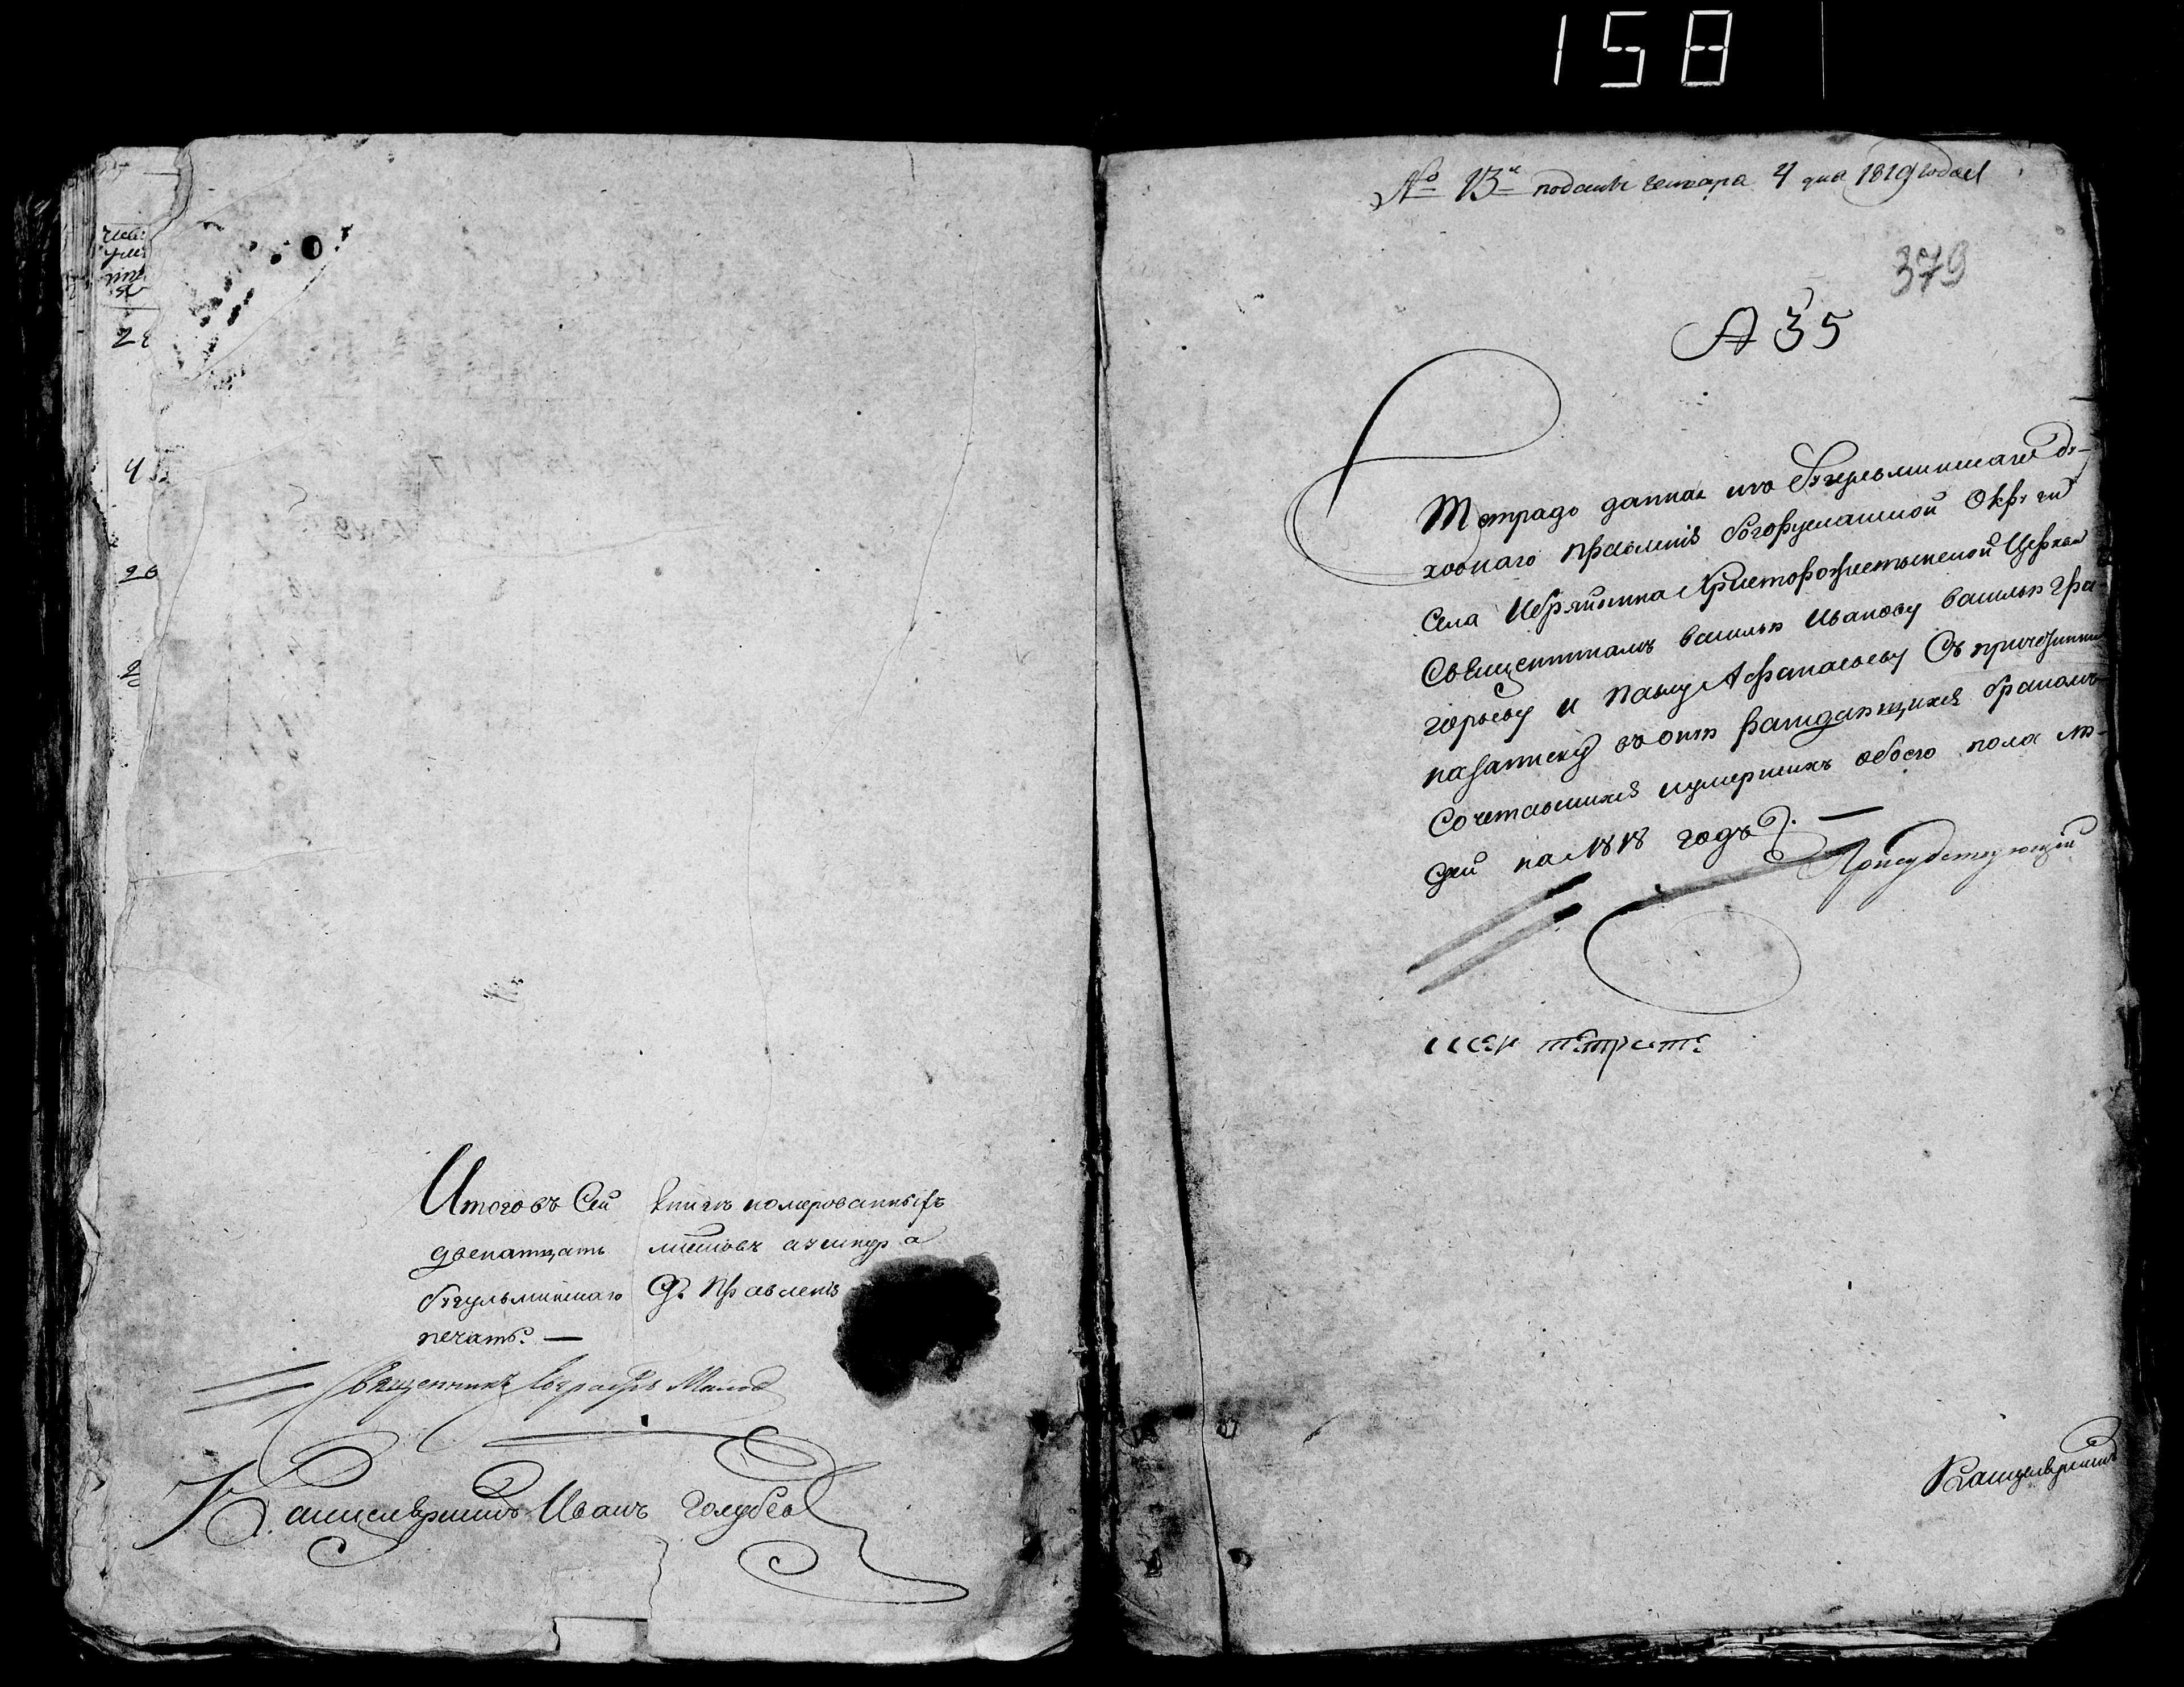 158
2
4
20
Итого въ Сей книге номерованныхъ
двенатцать листовъ
бугульминскаго Дх: Правления
печать. —
Священникъ Малов
Канцеляристъ Иванъ Голубев
№ 13й поданы генваря 4 дня 1819 года
379
А 35
Тетрадь данная изъ Бугульминскаго ду-
ховнаго правления богоруслашной округи
Села Ибряйкина Христорождественской Церкви
Священникамъ василью Иванову василью гри-
горьеву и павлу Афанасьеву Съ причетники
на записку во оной раждающихся бракомъ
Сочетавшихся и умершихъ обоего пола лю-
дей на 1818 годъ. —
Присудствующий
Канцеляристъ